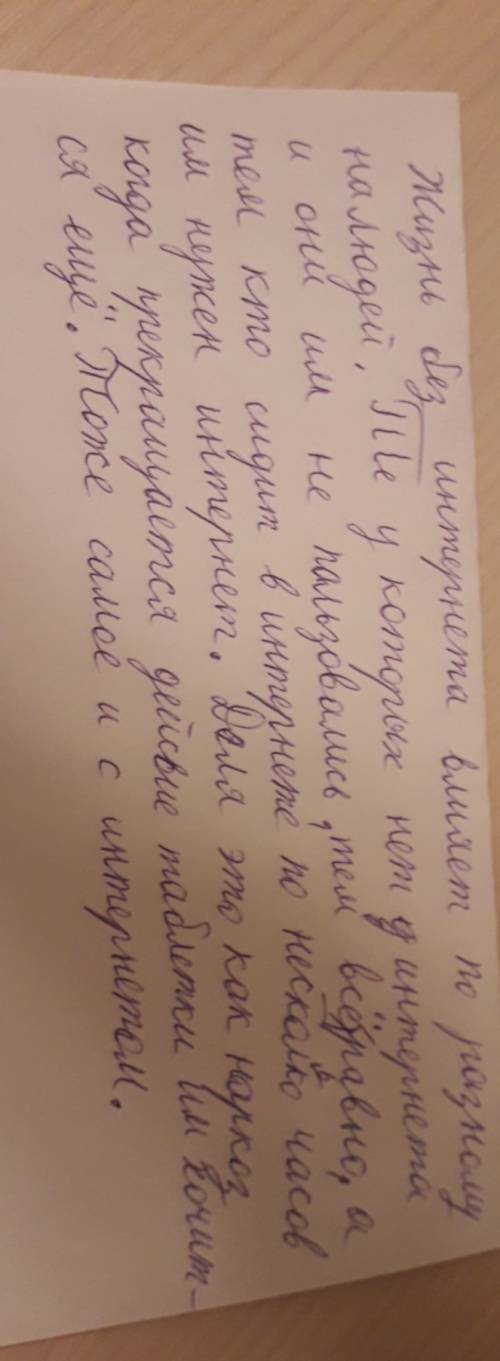 Жизнь без интернета влияет по разному
налюдей. Те у которых нет интернета
и они им не пользовались, тем всёравно, а
тем кто сидит в интернете по несколько часов
им нужен интернет. Деля это как наркоз
когда прекращается дейсвие таблетки им хочит-
ся ещё. Тоже самое и с интернетом.